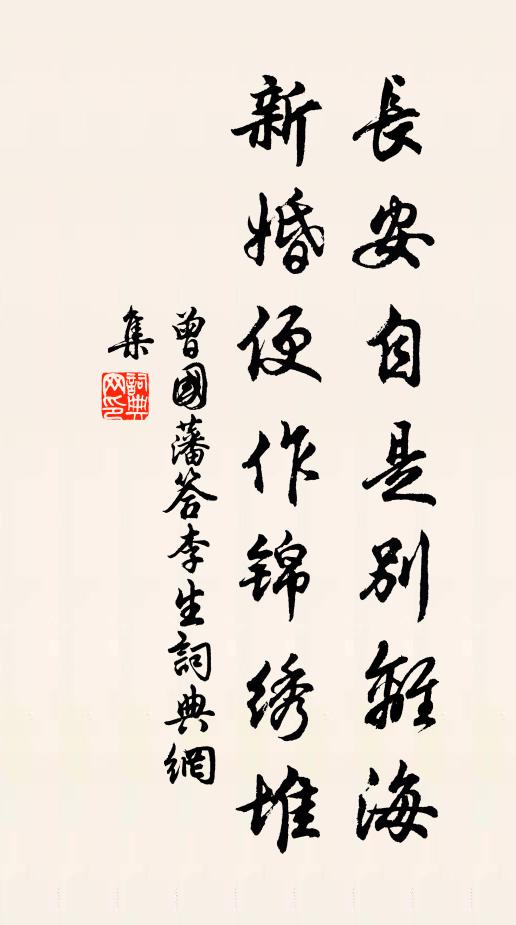 長安自是別離海
新婚便作錦綉堆
曾國藩答李生詞典網
集
詞典网印